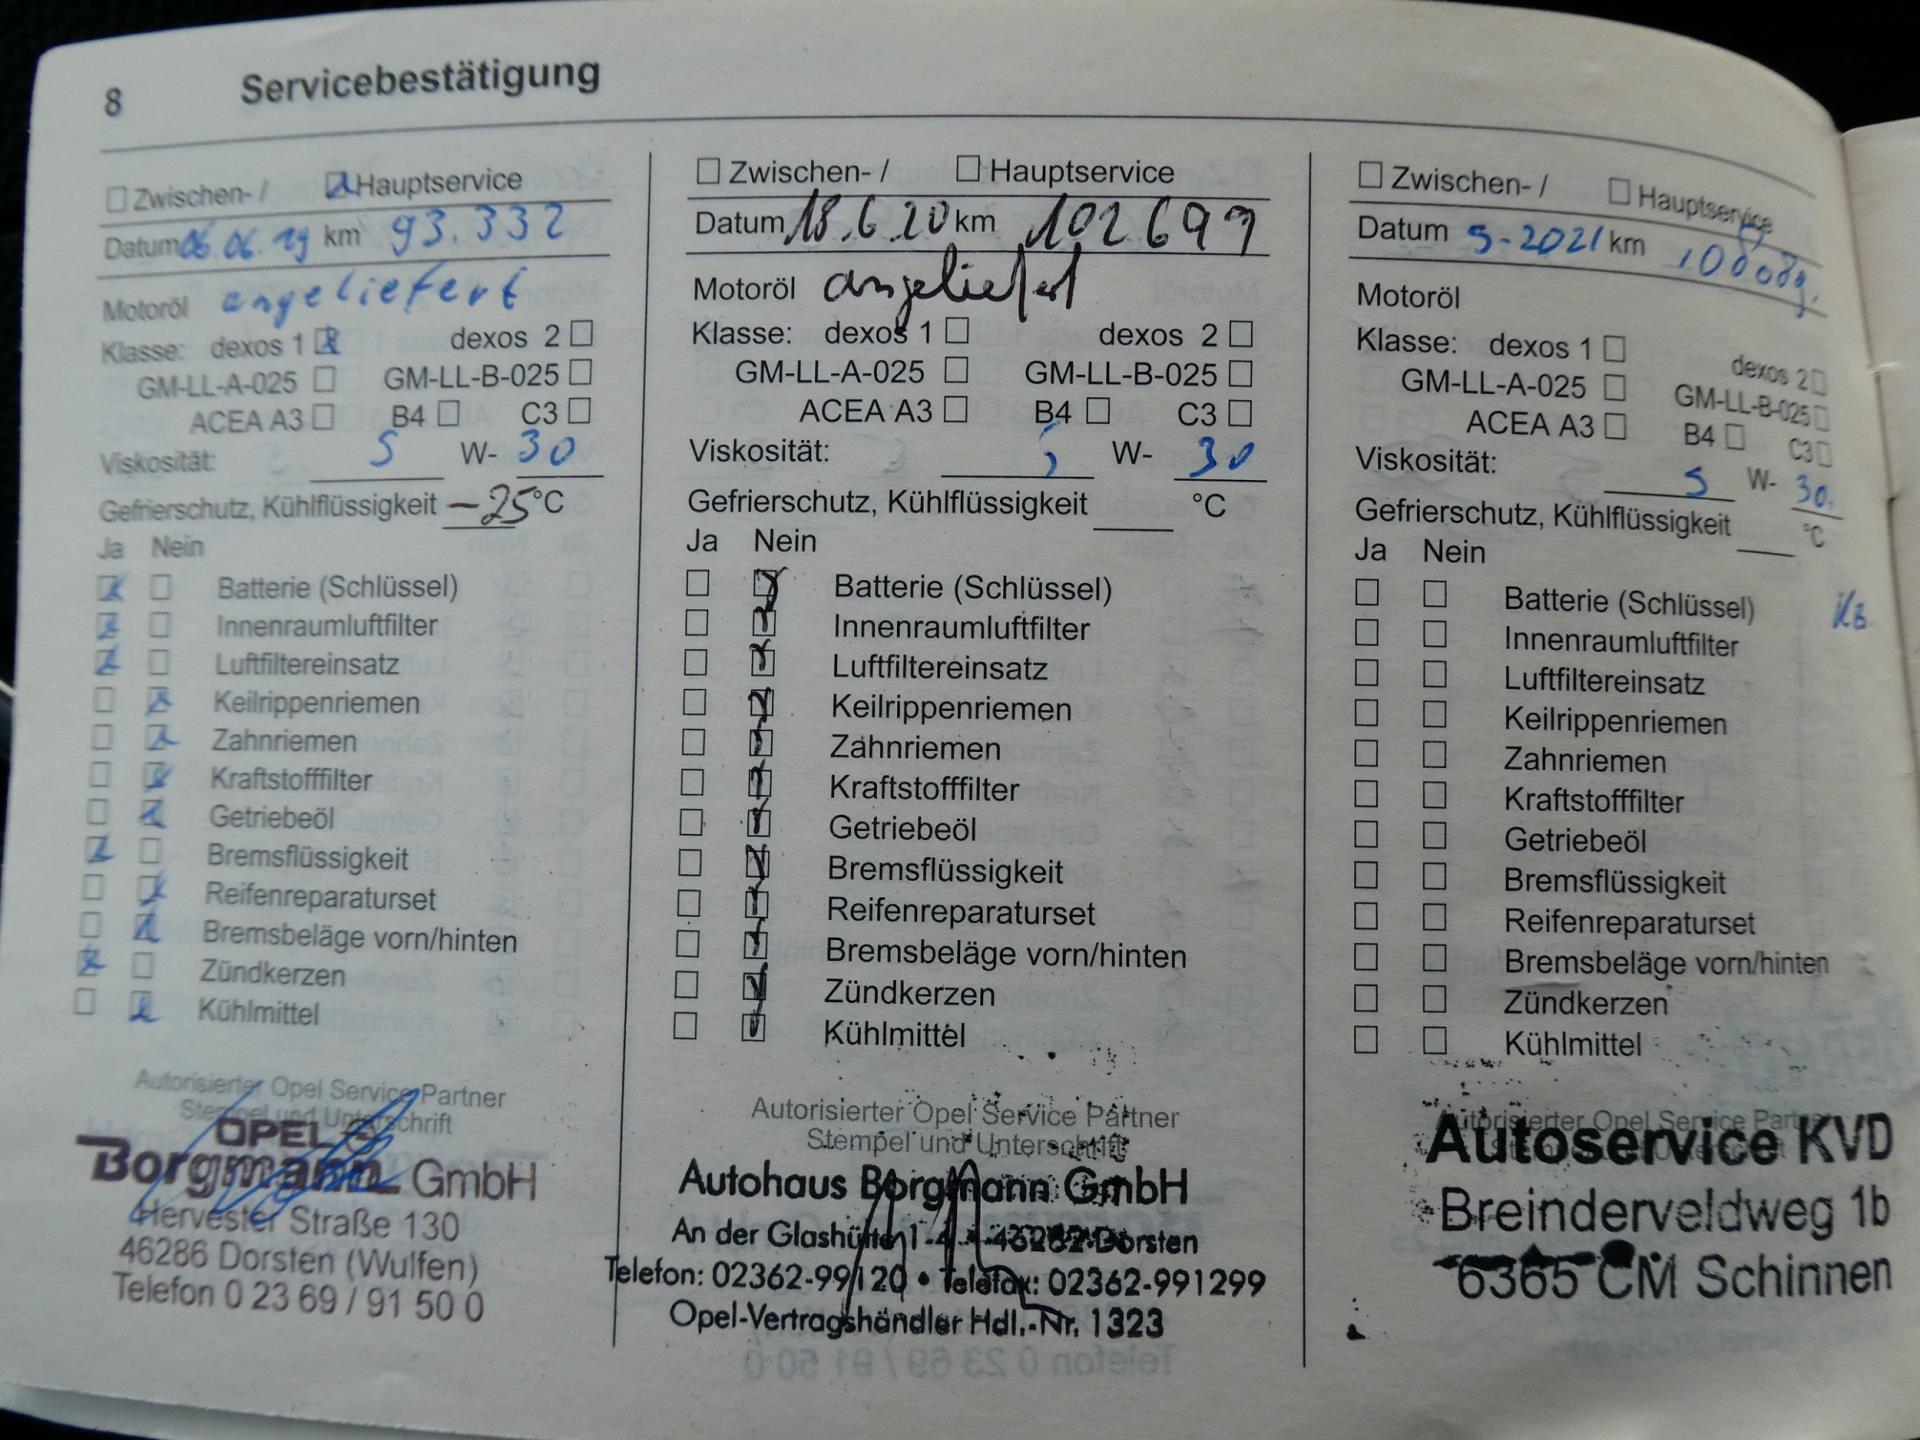 8 Servicebestätigung
Zwischen- / Hauptservice
Datum 06.06.19 km 93.332
Motoröl angeliefert
Klasse: dexos 1 dexos 2
GM-LL-A-025 GM-LL-B-025
ACEA A3 B4 C3
Viskosität: 5 W- 30
Gefrierschutz, Kühlflüssigkeit -25 °C
Ja Nein
Batterie (Schlüssel)
Innenraumluftfilter
Luftfiltereinsatz
Keilrippenriemen
Zahnriemen
Kraftstofffilter
Getriebeöl
Bremsflüssigkeit
Reifenreparaturset
Bremsbeläge vorn/hinten
Zündkerzen
Kühlmittel
Autorisierter Opel Service Partner
Stempel und Unterschrift
OPEL
Borgmann GmbH
Hervester Straße 130
46286 Dorsten (Wulfen)
Telefon 0 23 69 / 91 50 0
Zwischen- / Hauptservice
Datum 18.6.20 km 102697
Motoröl angeliefert
Klasse: dexos 1 dexos 2
GM-LL-A-025 GM-LL-B-025
ACEA A3 B4 C3
Viskosität: 5 W- 30
Gefrierschutz, Kühlflüssigkeit °C
Ja Nein
Batterie (Schlüssel)
Innenraumluftfilter
Luftfiltereinsatz
Keilrippenriemen
Zahnriemen
Kraftstofffilter
Getriebeöl
Bremsflüssigkeit
Reifenreparaturset
Bremsbeläge vorn/hinten
Zündkerzen
Kühlmittel
Autorisierter Opel Service Partner
Stempel und Unterschrift
Autohaus Borgmann GmbH
An der Glashütte 1-4 • 46282 Dorsten
Telefon: 02362-99120 • Telefax: 02362-991299
Opel-Vertragshändler Hdl.-Nr. 1323
Zwischen- / Hauptservice
Datum 5-2021 km
Motoröl
Klasse: dexos 1 dexos 2
GM-LL-A-025 GM-LL-B-025
ACEA A3 B4 C3
Viskosität: 5 W- 30.
Gefrierschutz, Kühlflüssigkeit °C
Ja Nein
Batterie (Schlüssel)
Innenraumluftfilter
Luftfiltereinsatz
Keilrippenriemen
Zahnriemen
Kraftstofffilter
Getriebeöl
Bremsflüssigkeit
Reifenreparaturset
Bremsbeläge vorn/hinten
Zündkerzen
Kühlmittel
Autorisierter Opel Service Partner
Autoservice KVD
Breinderveldweg 1b
6365 CM Schinnen